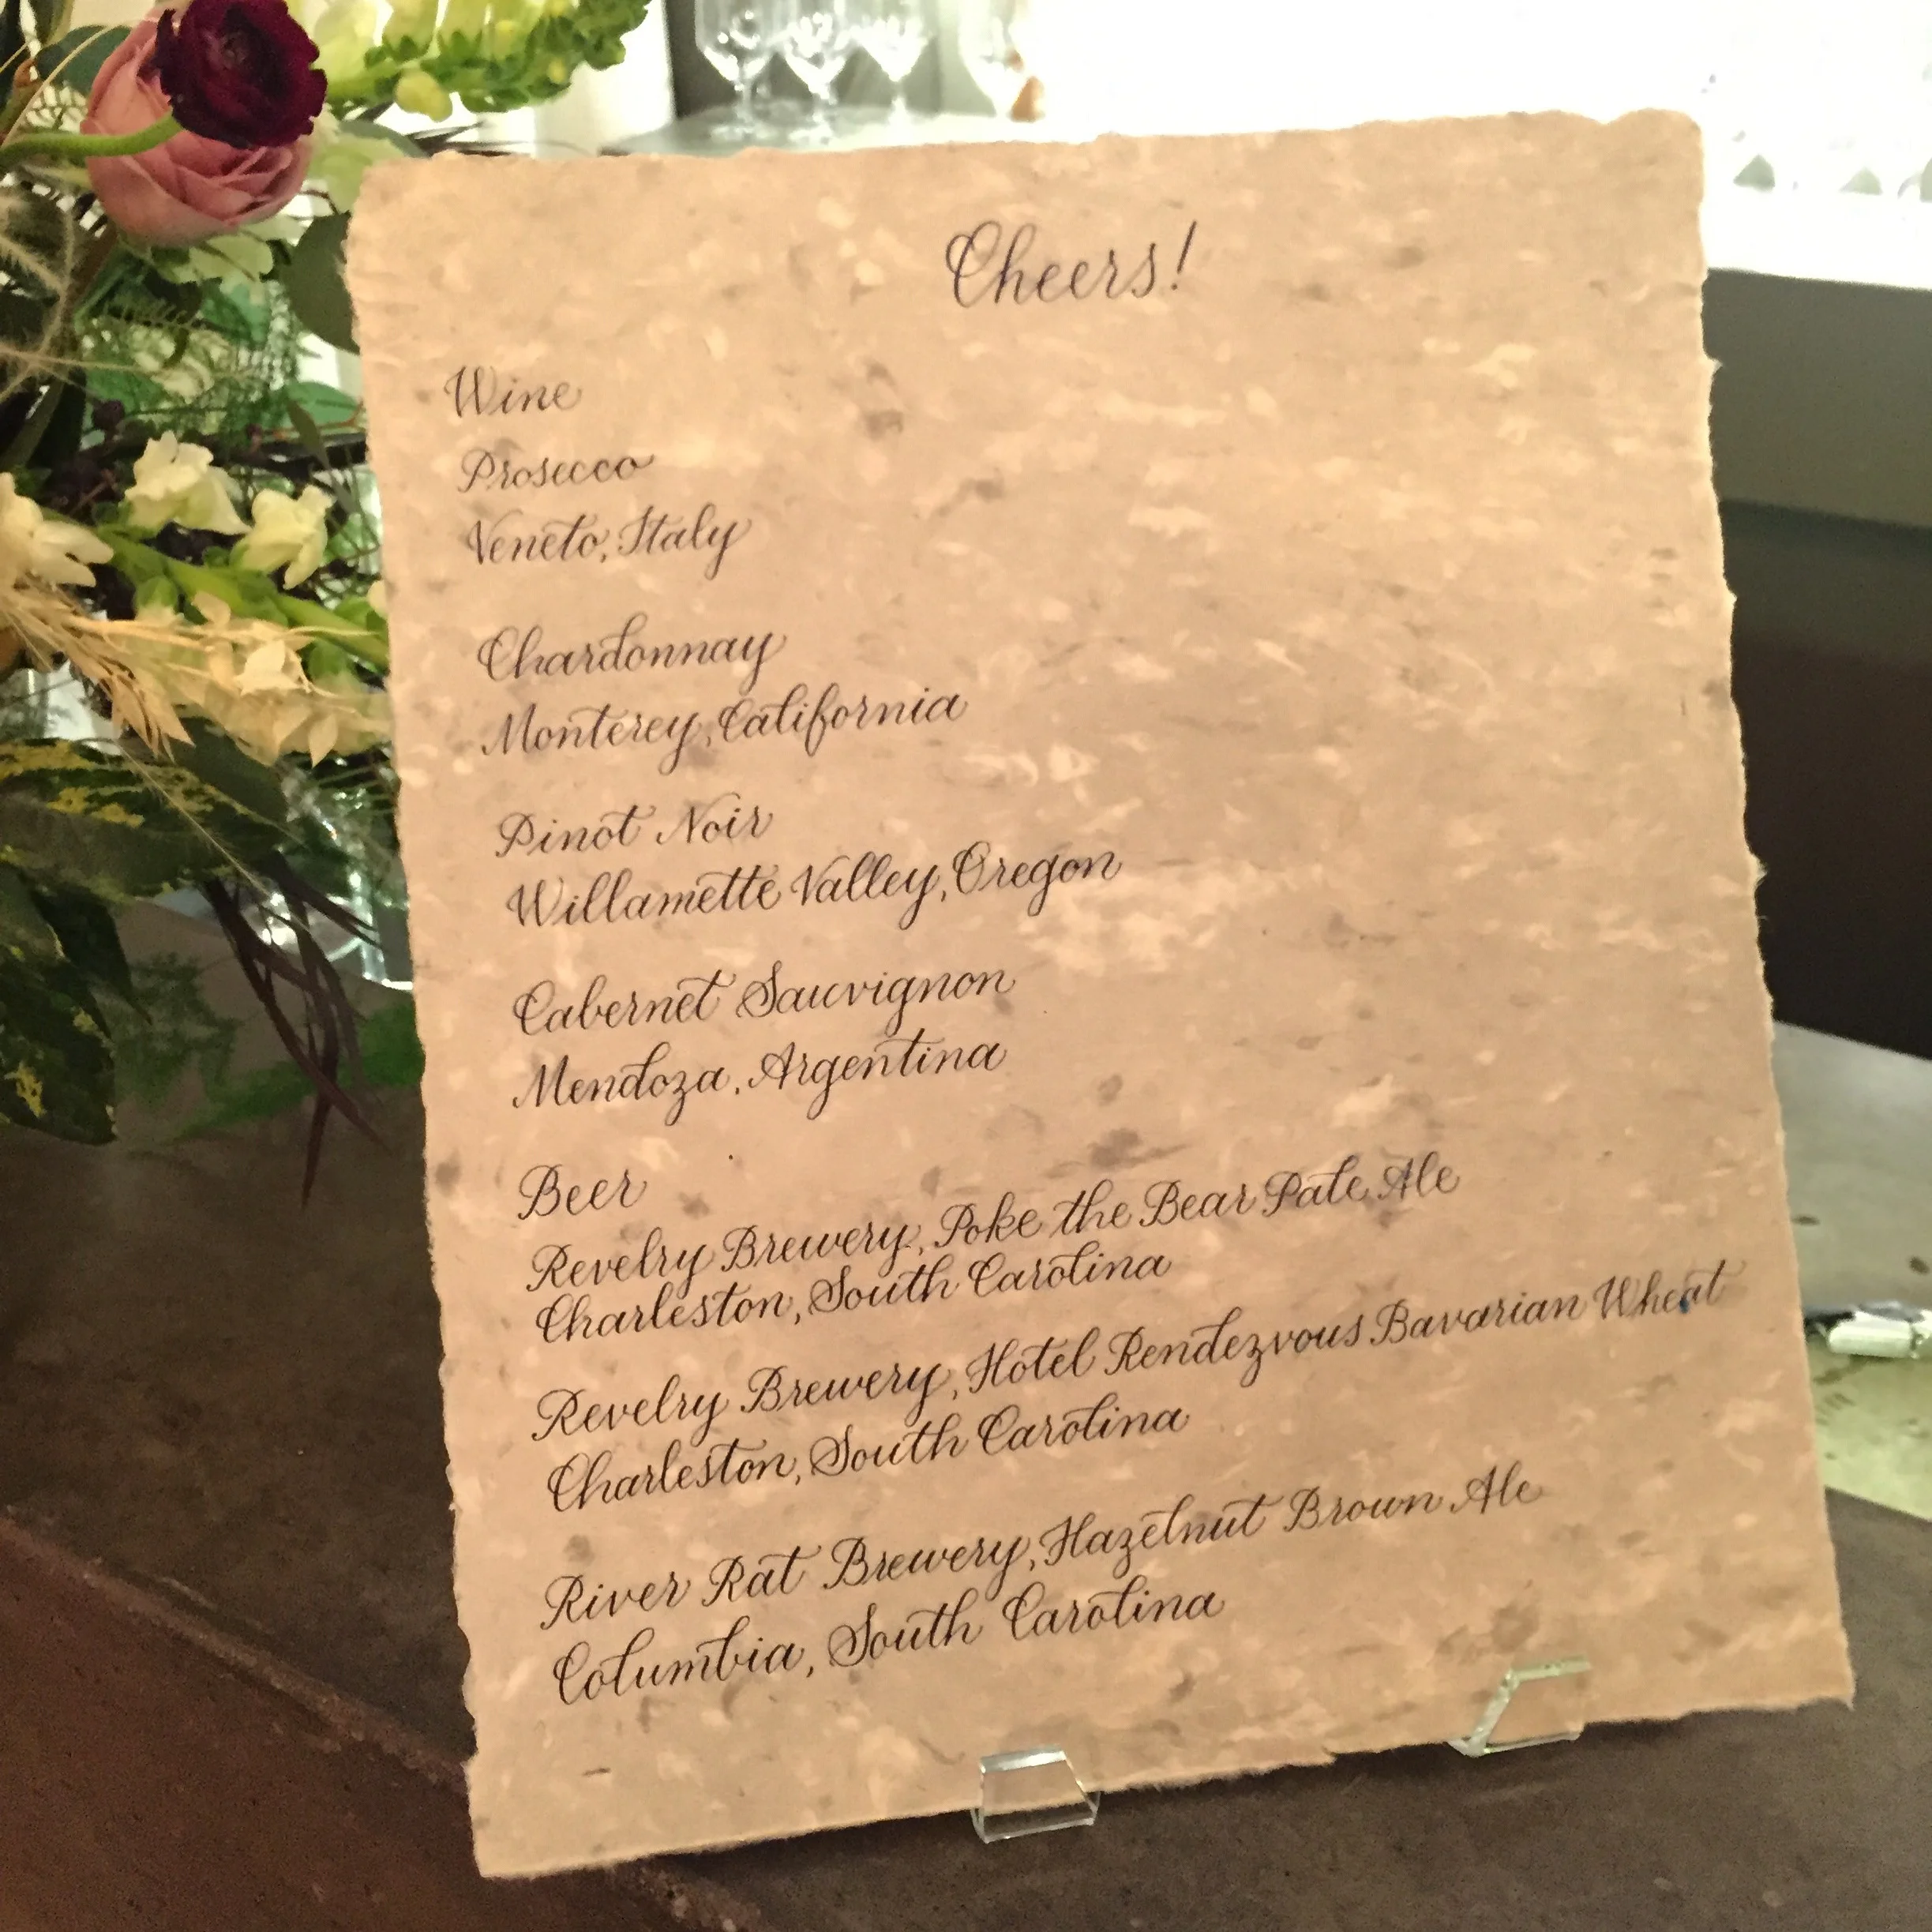 Cheers!
Wine
Prosecco
Veneto, Italy
Chardonnay
Monterey, California
Pinot Noir
Willamette Valley, Oregon
Cabernet Sauvignon
Mendoza, Argentina
Beer
Revelry Brewery, Poke the Bear Pale Ale
Charleston, South Carolina
Revelry Brewery, Hotel Rendezvous Bavarian Wheat
Charleston, South Carolina
River Rat Brewery, Hazelnut Brown Ale
Columbia, South Carolina